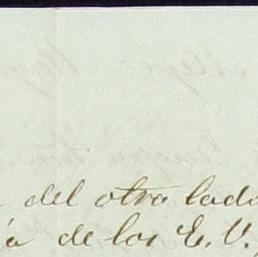 del otro lado
de los E. V.